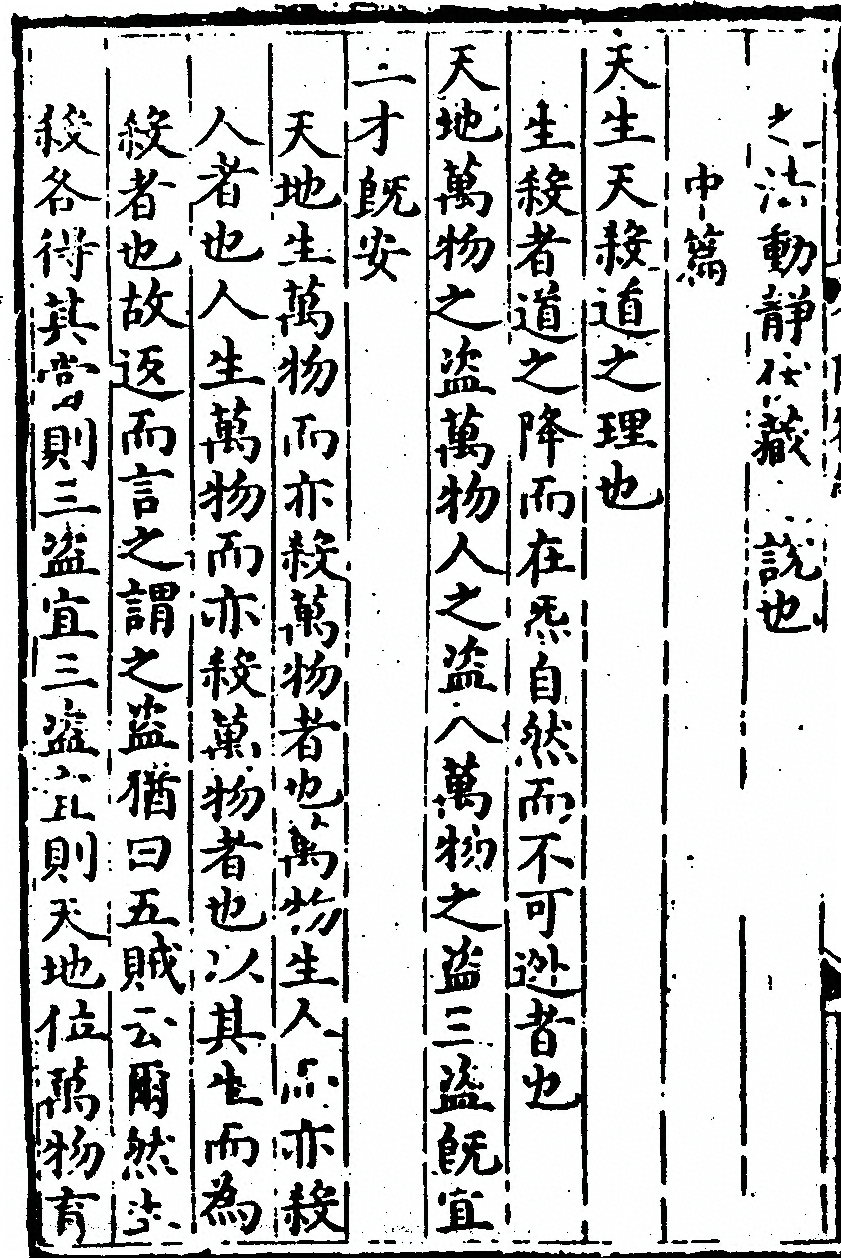 之法動靜伏藏之說也
中篇
天生天殺道之理也
生殺者道之降而在炁自然而不可逃者也
天地萬物之盜萬物人之盜人萬物之盜三盜既宜
三才既安
天地生萬物而亦殺萬物者也萬物生人而亦殺
人者也人生萬物而亦殺萬物者也以其生而為
殺者也故返而言之謂之盜猶曰五賊云爾然生
殺各得其當則三盜宜三盜宜則天地位萬物育